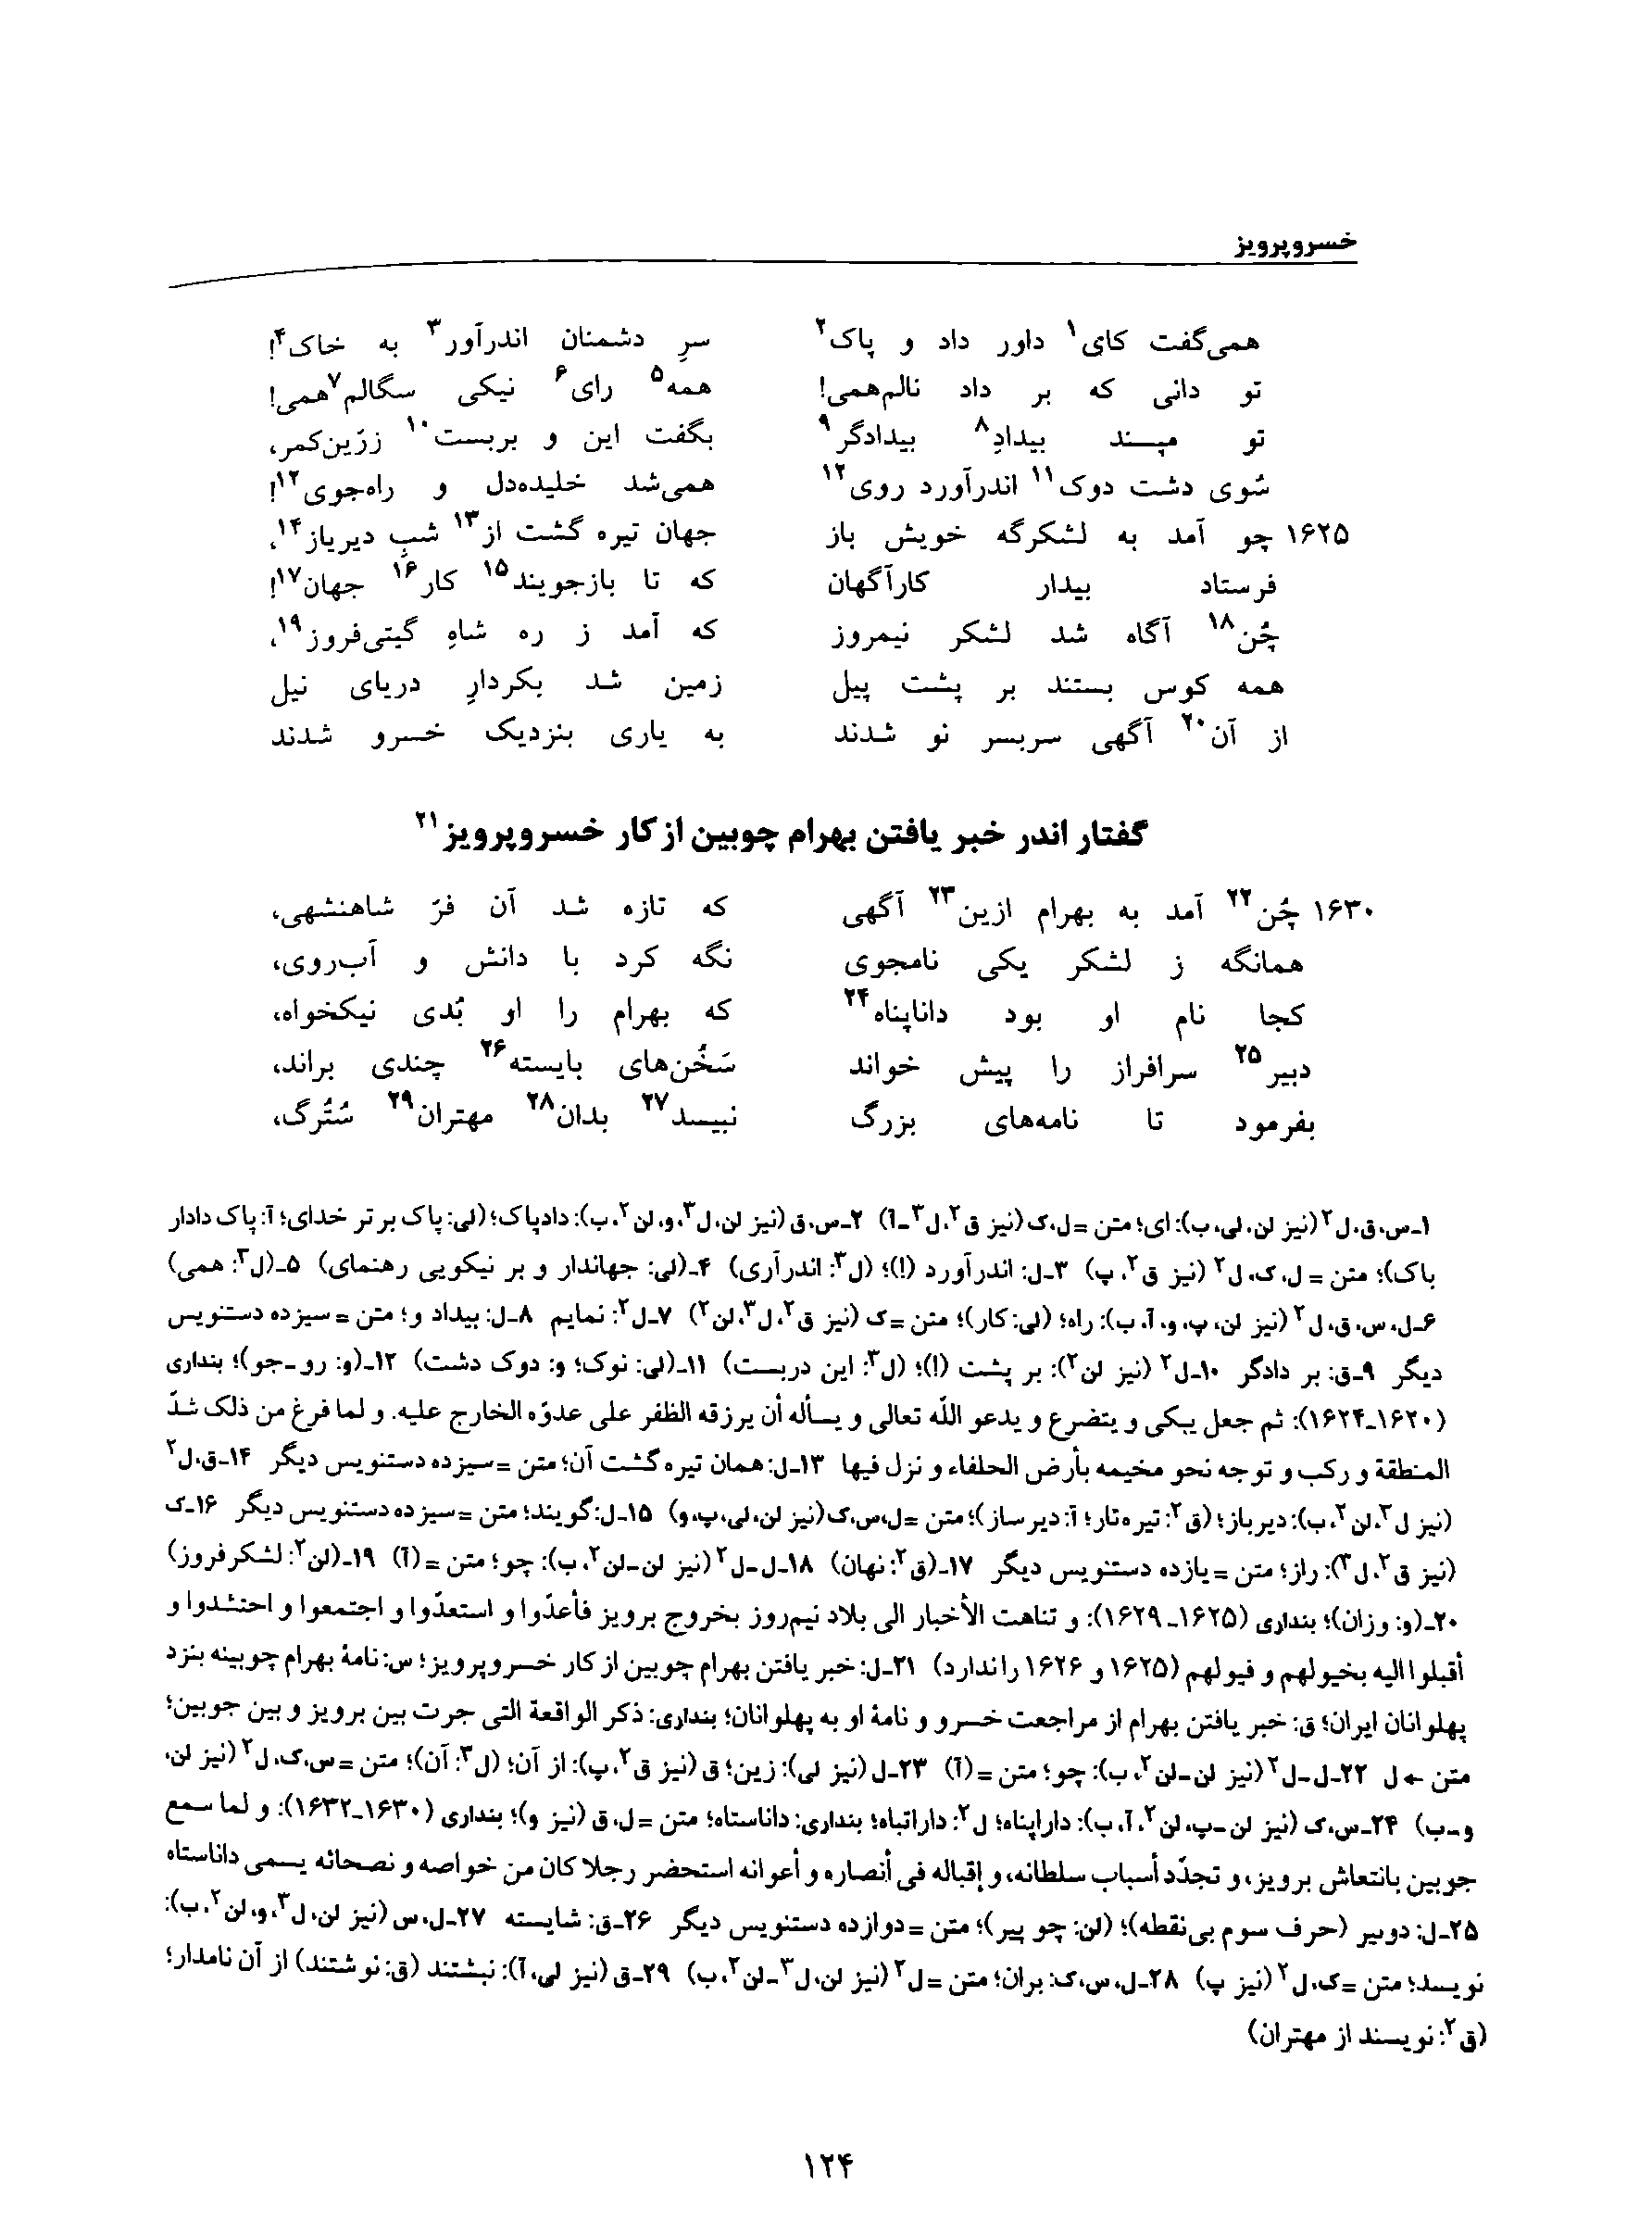 خسروپرویز
همی‌گفت کای۱ داور داد و پاک۲ سرِ دشمنان اندرآور۳ به خاک۴!
تو دانی که بر داد نالم‌همی! همه۵ رای۶ نیکی سگالم۷همی!
تو مپسند بیدادِ۸ بیدادگر۹ بگفت این و بربست۱۰ زرّین‌کمر،
سُوی دشت دوک۱۱ اندرآورد روی۱۲ همی‌شد خلیده‌دل و راه‌جوی۱۲!
۱۶۲۵ چو آمد به لشکرگه خویش باز جهان تیره گشت از۱۳ شبِ دیریاز۱۴،
فرستاد بیدار کارآگهان که تا بازجویند۱۵ کار۱۶ جهان۱۷!
چُن۱۸ آگاه شد لشکر نیمروز که آمد ز ره شاهِ گیتی‌فروز۱۹،
همه کوس بستند بر پشت پیل زمین شد بکردارِ دریای نیل
از آن۲۰ آگهی سربسر نو شدند به یاری بنزدیک خسرو شدند
گفتار اندر خبر یافتن بهرام چوبین از کار خسروپرویز۲۱
۱۶۳۰ چُن۲۲ آمد به بهرام ازین۲۳ آگهی که تازه شد آن فرّ شاهنشهی،
همانگه ز لشکر یکی نامجوی نگه کرد با دانش و آب‌روی،
کجا نام او بود داناپناه۲۴ که بهرام را او بُدی نیکخواه،
دبیر۲۵ سرافراز را پیش خواند سَخُن‌های بایسته۲۶ چندی براند،
بفرمود تا نامه‌های بزرگ نبیسد۲۷ بدان۲۸ مهتران۲۹ سُتُرگ،
۱ـ س، ق، ل۲ (نیز لن، لی، ب): ای؛ متن = ل، ک (نیز ق۲، ل۳ـ آ) ۲ـ س، ق (نیز لن، ل۳، و، لن۲، ب): دادپاک؛ (لی: پاک برتر خدای؛ آ: پاک دادار
پاک)؛ متن = ل، ک، ل۲ (نیز ق۲، پ) ۳ـ ل: اندرآورد (!)؛ (ل۳: اندرآری) ۴ـ (لی: جهاندار و بر نیکویی رهنمای) ۵ـ (ل۳: همی)
۶ـ ل، س، ق، ل۲ (نیز لن، پ، و، آ، ب): راه؛ (لی: کار)؛ متن = ک (نیز ق۲، ل۳، لن۲) ۷ـ ل۲: نمایم ۸ـ ل: بیداد و؛ متن = سیزده دستنویس
دیگر ۹ـ ق: بر دادگر ۱۰ـ ل۲ (نیز لن۲): بر پشت (!)؛ (ل۳: این دربست) ۱۱ـ (لی: نوک؛ و: دوک دشت) ۱۲ـ (و: رو ـ جو)؛ بنداری
(۱۶۲۰ـ۱۶۲۴): ثم جعل یبکی و یتضرع و یدعو اللّه تعالی و یسأله أن یرزقه الظفر علی عدوّه الخارج علیه. و لما فرغ من ذلک شدّ
المنطقة و رکب و توجه نحو مخیمه بأرض الحلفاء و نزل فیها ۱۳ـ ل: همان تیره گشت آن؛ متن = سیزده دستنویس دیگر ۱۴ـ ق، ل۲
(نیز ل۳، لن۲، ب): دیرباز؛ (ق۲: تیره‌تار؛ آ: دیر ساز)؛ متن = ل، س، ک (نیز لن، لی، پ، و) ۱۵ـ ل: گویند؛ متن = سیزده دستنویس دیگر ۱۶ـ ک
(نیز ق۲، ل۳): راز؛ متن = یازده دستنویس دیگر ۱۷ـ (ق۲: نهان) ۱۸ـ ل ـ ل۲ (نیز لن ـ لن۲، ب): چو؛ متن = (آ) ۱۹ـ (لن۲: لشکرفروز)
۲۰ـ (و: وزان)؛ بنداری (۱۶۲۵ـ۱۶۲۹): و تناهت الأخبار الی بلاد نیم‌روز بخروج برویز فأعدّوا و استعدّوا و اجتمعوا و احتشدوا و
أقبلوا الیه بخیولهم و فیولهم (۱۶۲۵ و ۱۶۲۶ را ندارد) ۲۱ـ ل: خبر یافتن بهرام چوبین از کار خسروپرویز؛ س: نامهٔ بهرام چوبینه بنزد
پهلوانان ایران؛ ق: خبر یافتن بهرام از مراجعت خسرو و نامهٔ او به پهلوانان؛ بنداری: ذکر الواقعة التی جرت بین برویز و بین جوبین؛
متن ← ل ۲۲ـ ل ـ ل۲ (نیز لن ـ لن۲، ب): چو؛ متن = (آ) ۲۳ـ ل (نیز لی): زین؛ ق (نیز ق۲، پ): از آن؛ (ل۳: آن)؛ متن = س، ک، ل۲ (نیز لن،
و ـ ب) ۲۴ـ س، ک (نیز لن ـ پ، لن۲، آ، ب): داراپناه؛ ل۲: داراتباه؛ بنداری: داناستاه؛ متن = ل، ق (نیز و)؛ بنداری (۱۶۳۰ـ۱۶۳۲): و لما سمع
جوبین بانتعاش برویز، و تجدّد أسباب سلطانه، و إقباله فی أنصاره و أعوانه استحضر رجلا کان من خواصه و نصحائه یسمی داناستاه
۲۵ـ ل: دوبیر (حرف سوم بی‌نقطه)؛ (لن: چو پیر)؛ متن = دوازده دستنویس دیگر ۲۶ـ ق: شایسته ۲۷ـ ل، س (نیز لن، ل۳، و، لن۲، ب):
نویسد؛ متن = ک، ل۲ (نیز پ) ۲۸ـ ل، س، ک: بران؛ متن = ل۲ (نیز لن، ل۳ ـ لن۲، ب) ۲۹ـ ق (نیز لی، آ): نبشتند (ق: نوشتند) از آن نامدار؛
(ق۲: نویسند از مهتران)
۱۲۴